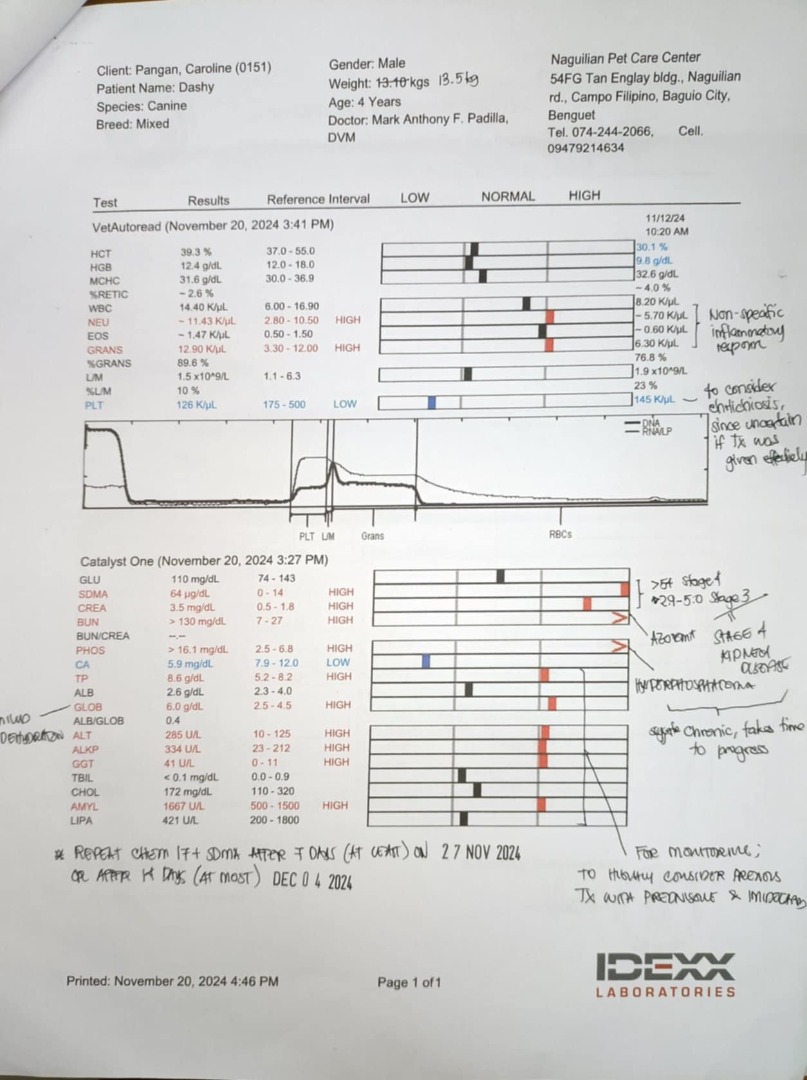 Client: Pangan, Caroline (0151)
Patient Name: Dashy
Species: Canine
Breed: Mixed
Gender: Male
Weight: 13.10 kgs 13.5 kg
Age: 4 Years
Doctor: Mark Anthony F. Padilla,
DVM
Naguilian Pet Care Center
54FG Tan Englay bldg., Naguilian
rd., Campo Filipino, Baguio City,
Benguet
Tel. 074-244-2066, Cell.
09479214634
Test Results Reference Interval LOW NORMAL HIGH
VetAutoread (November 20, 2024 3:41 PM) 11/12/24
10:20 AM
HCT 39.3 % 37.0 - 55.0 30.1 %
HGB 12.4 g/dL 12.0 - 18.0 9.8 g/dL
MCHC 31.6 g/dL 30.0 - 36.9 32.6 g/dL
%RETIC ~ 2.6 % ~ 4.0 %
WBC 14.40 K/µL 6.00 - 16.90 8.20 K/µL
NEU ~ 11.43 K/µL 2.80 - 10.50 HIGH ~ 5.70 K/µL
EOS ~ 1.47 K/µL 0.50 - 1.50 ~ 0.60 K/µL
GRANS 12.90 K/µL 3.30 - 12.00 HIGH 6.30 K/µL
%GRANS 89.6 % 76.8 %
L/M 1.5 x10^9/L 1.1 - 6.3 1.9 x10^9/L
%L/M 10 % 23 %
PLT 126 K/µL 175 - 500 LOW 145 K/µL
Non-specific
inflammatory
to consider
ehrlichiosis,
since uncertain
if Tx was
given effectively
DNA
RNA/LP
PLT L/M Grans RBCs
Catalyst One (November 20, 2024 3:27 PM)
GLU 110 mg/dL 74 - 143
SDMA 64 µg/dL 0 - 14 HIGH
CREA 3.5 mg/dL 0.5 - 1.8 HIGH
BUN > 130 mg/dL 7 - 27 HIGH
BUN/CREA --.--
PHOS > 16.1 mg/dL 2.5 - 6.8 HIGH
CA 5.9 mg/dL 7.9 - 12.0 LOW
TP 8.6 g/dL 5.2 - 8.2 HIGH
ALB 2.6 g/dL 2.3 - 4.0
GLOB 6.0 g/dL 2.5 - 4.5 HIGH
ALB/GLOB 0.4
ALT 285 U/L 10 - 125 HIGH
ALKP 334 U/L 23 - 212 HIGH
GGT 41 U/L 0 - 11 HIGH
TBIL < 0.1 mg/dL 0.0 - 0.9
CHOL 172 mg/dL 110 - 320
AMYL 1667 U/L 500 - 1500 HIGH
LIPA 421 U/L 200 - 1800
>54 Stage 4
2.9-5.0 Stage 3
STAGE 4
KIDNEY
DISEASE
HYPERPHOSPHATEMIA
Chronic, takes time
to progress
DEHYDRATION
* REPEAT CHEM 17 + SDMA AFTER 7 DAYS (AT LEAST) ON 27 NOV 2024
OR AFTER 14 DAYS (AT MOST) DEC 04 2024
FOR MONITORING;
TO HIGHLY CONSIDER
TX WITH PREDNISONE &
IDEXX
LABORATORIES
Printed: November 20, 2024 4:46 PM Page 1 of 1